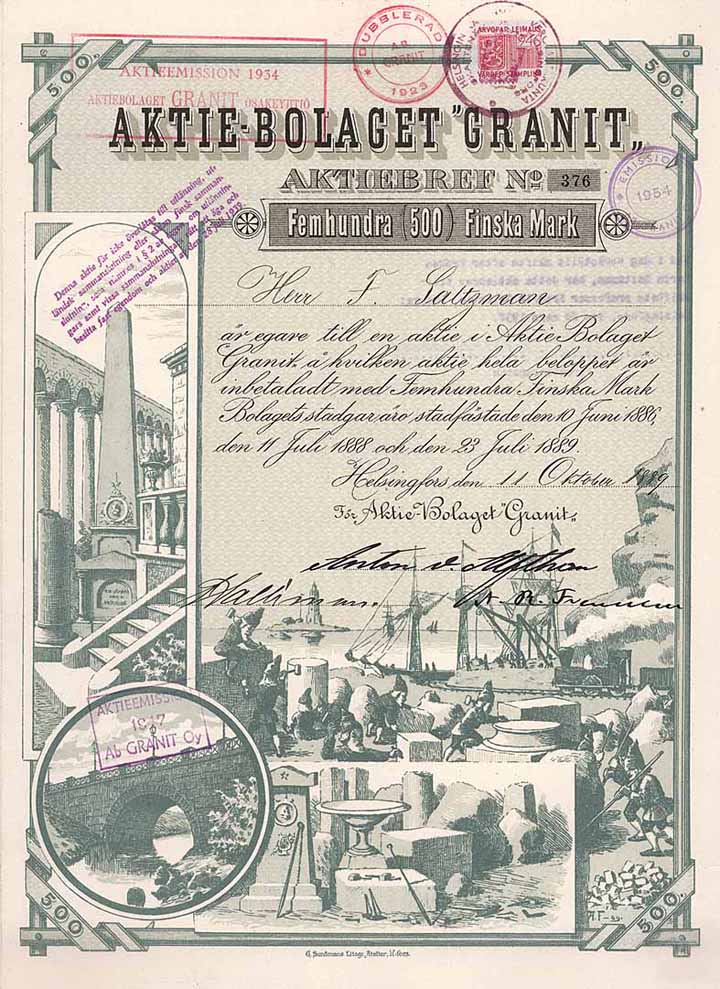 AKTIEEMISSION 1934
AKTIEBOLAGET GRANIT OSAKEYHTIÖ
* DUBBLERAD *
A.B.
GRANIT
1923
HELSINGIN
ARVOPAP. LEIMAUS
VÄRDEP. STÄMPLING
500.
500.
AKTIE-BOLAGET "GRANIT"
AKTIEBREF No 376
Femhundra (500) Finska Mark
* EMISSION *
1954
Denna aktie får icke överlåtas till utlänning, ut-
ländsk sammanslutning eller sådan finsk samman-
slutning, som nämnes i § 2 av lagen om utlännin-
gars samt vissa sammanslutningars rätt att äga och
besitta fast egendom och aktier av den 28 juli 1939.
Herr F. Saltzman
är egare till en aktie i Aktie Bolaget
Granit, å hvilken aktie hela beloppet är
inbetaladt med Femhundra Finska Mark
Bolagets stadgar äro stadfästade den 10 Juni 1886,
den 11 Juli 1888 och den 23 Juli 1889.
Helsingfors den 11 Oktober 1889
För Aktie-Bolaget "Granit"
Anton v. Alfthan
AKTIEEMISSION
1947
Ab GRANIT Oy
500.
500.
G. Sundmans Litogr. Atelier, H:fors.